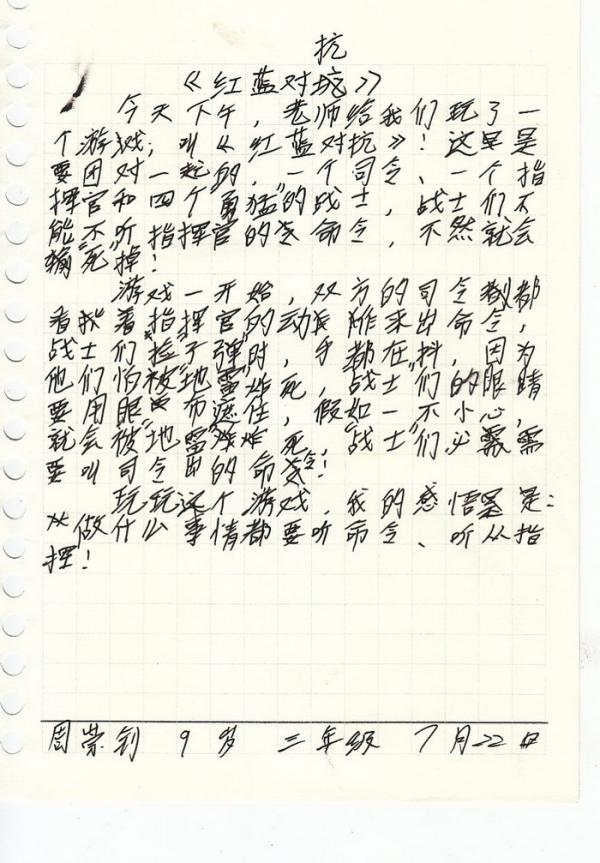 抗
《红蓝对抗》
今天下午，老师给我们玩了一
个游戏，叫《红蓝对抗》！这里是
要团对一起的，一个司令、一个指
挥官和四个勇猛的战士，战士们不
能"不"听指挥官的命令，不然就会
输"死"掉！
游戏一开始，双方的司令都
看着指挥官的动作来出命令，
战士们"捡"子弹"时，手都在抖，因为
他们怕被"地雷"炸死，战士"们的眼睛
要用眼布遮住，假如一不小心，
就会被"地雷"炸死，"战士"们必需
要叫司令的命令！
玩玩这个游戏，我的感悟是：
从做什么事情都要听命令、听从指
挥！
周崇钊 9岁 三年级 7月22日